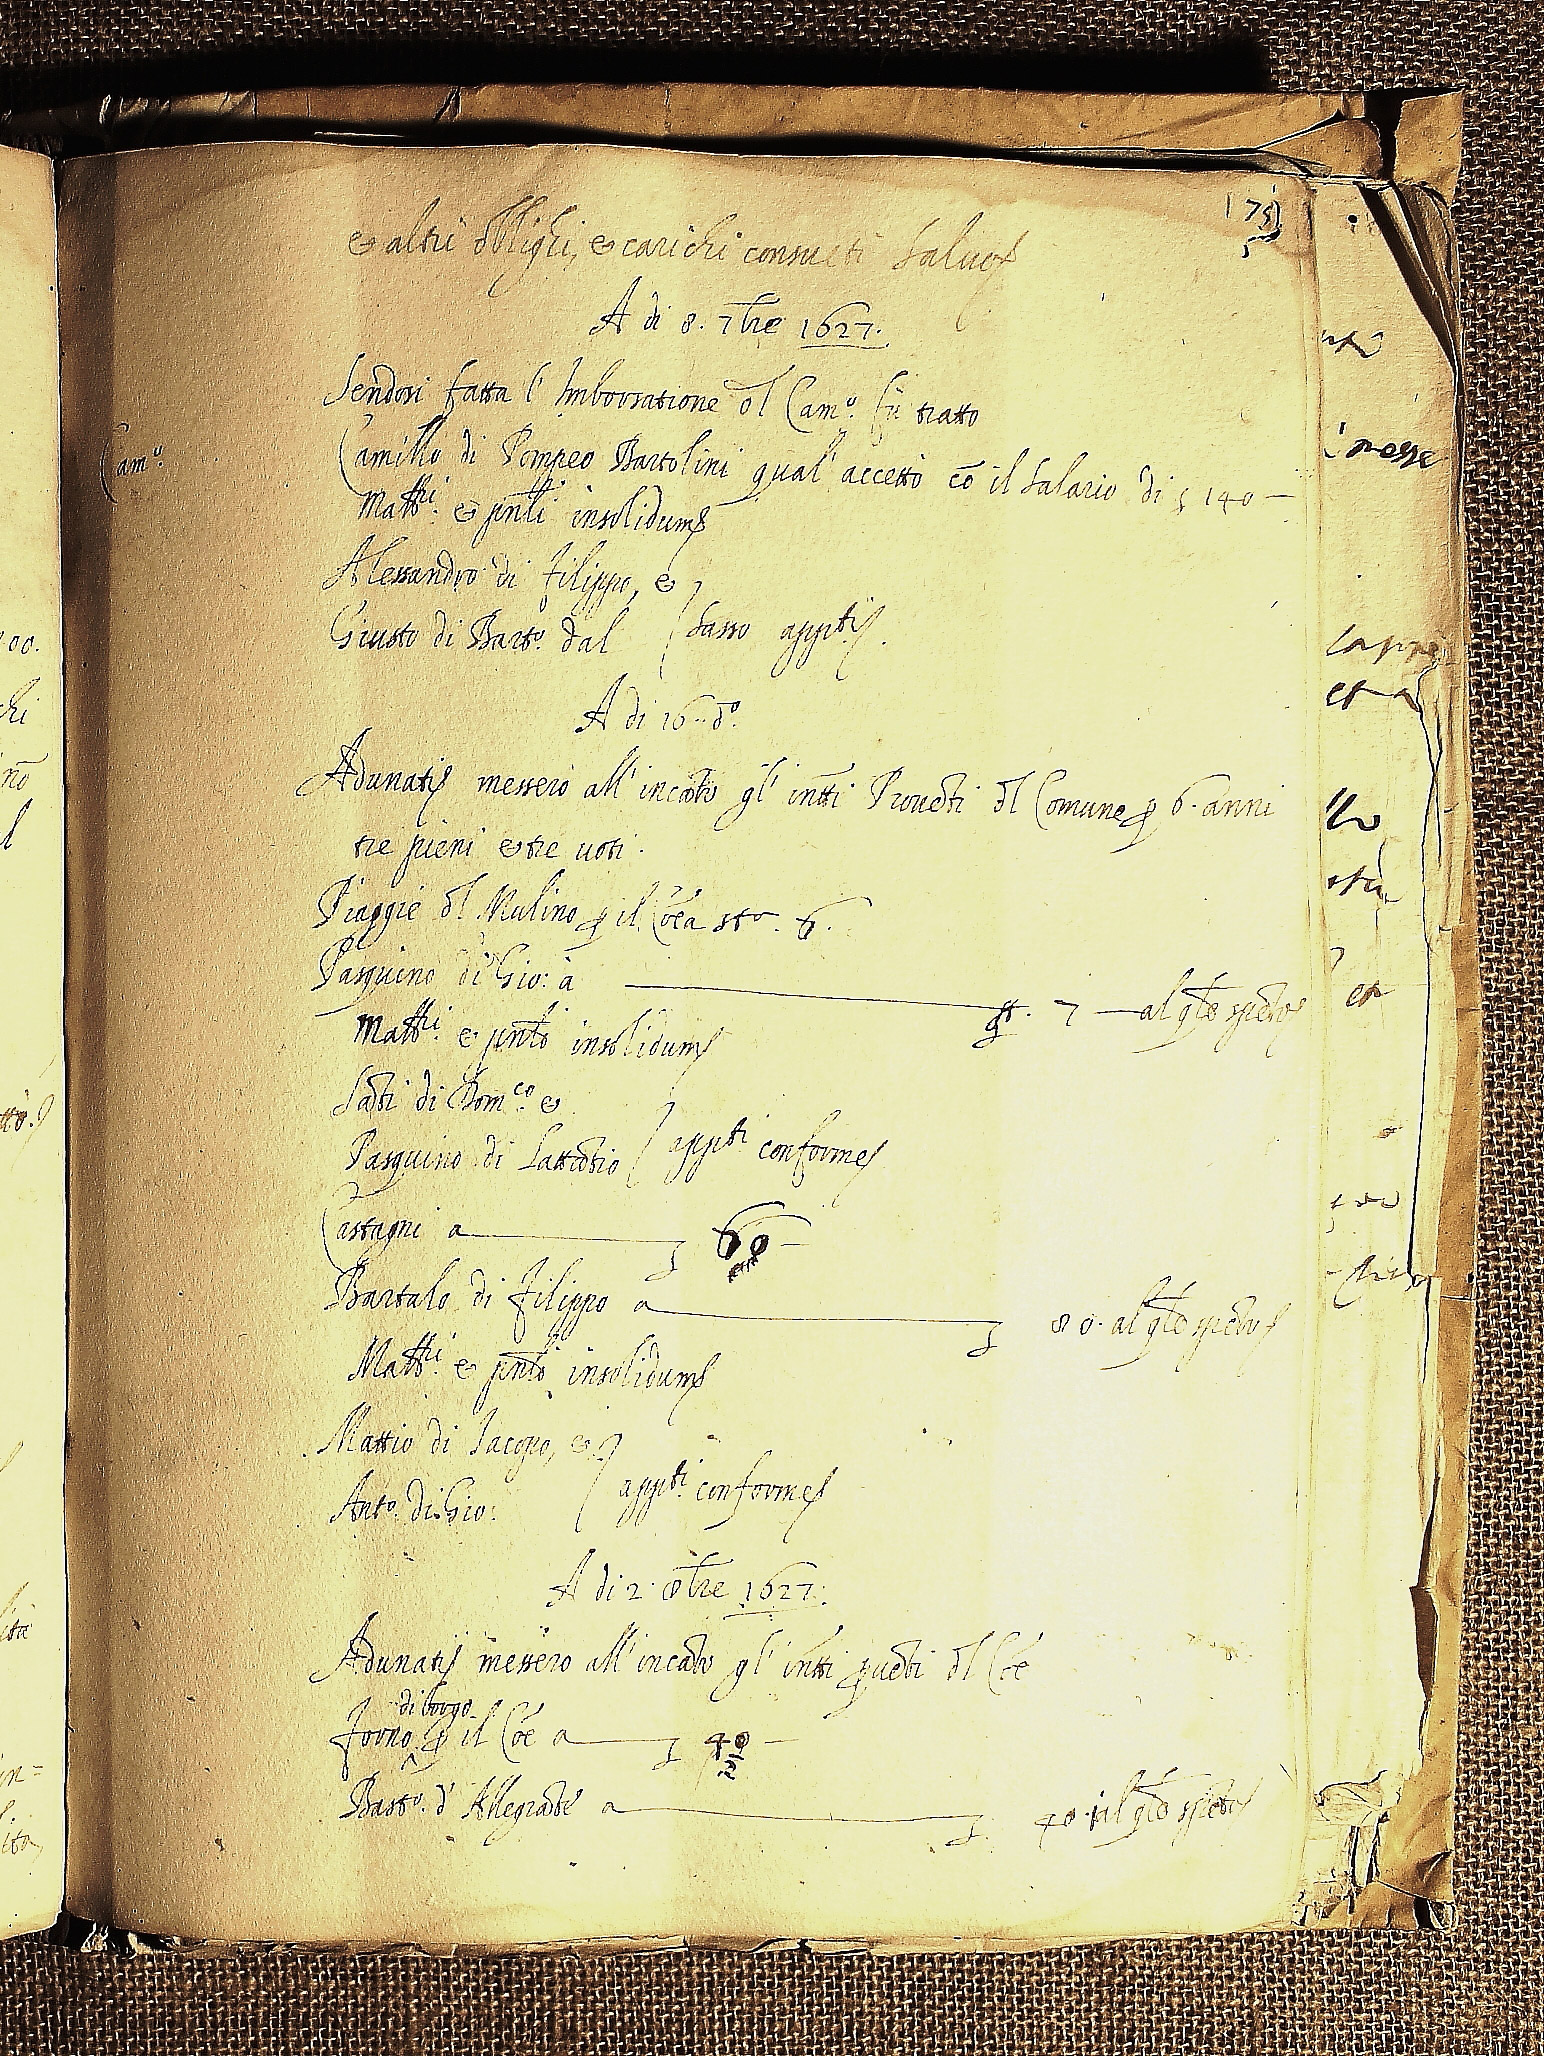 175
& altri oblighi, & carichi consueti salvo
A di 8. 7bre 1627.
Sendosi fatta l' Imborsatione dl Camo. fù tratto
Camo.
Camillo di Pompeo Bartolini qual' accettò cō il salario di 140 —
Matti: & pnti insolidum
Alessandro di Filippo, &
Giusto di Barto. dal Sasso appti.
A di 16 do.
Adunati messero all' incāto gl' intti Proveti dl Comune p 6. anni
tre pieni & tre voti.
Piaggie dl Mulino p il Cōe a sta. 6.
Pasquino di Gio: à 7 — al qle
Matti: & pnti insolidum
Sāti di Domco. &
Pasquino di Lattātio appti conforme
Castagni a 60 —
Bartalo di Filippo a 80. al qle
Matti: & pnti insolidum
Mattio di Iacopo, &
Anto. di Gio: appti. conforme
A di 2. 8bre 1627.
Adunati messero all' incāto gl' intti pveti dl Cōe
di borgo
Forno p il Cōe a 40 —
Basto. d' Allegrāte a 40. al qle